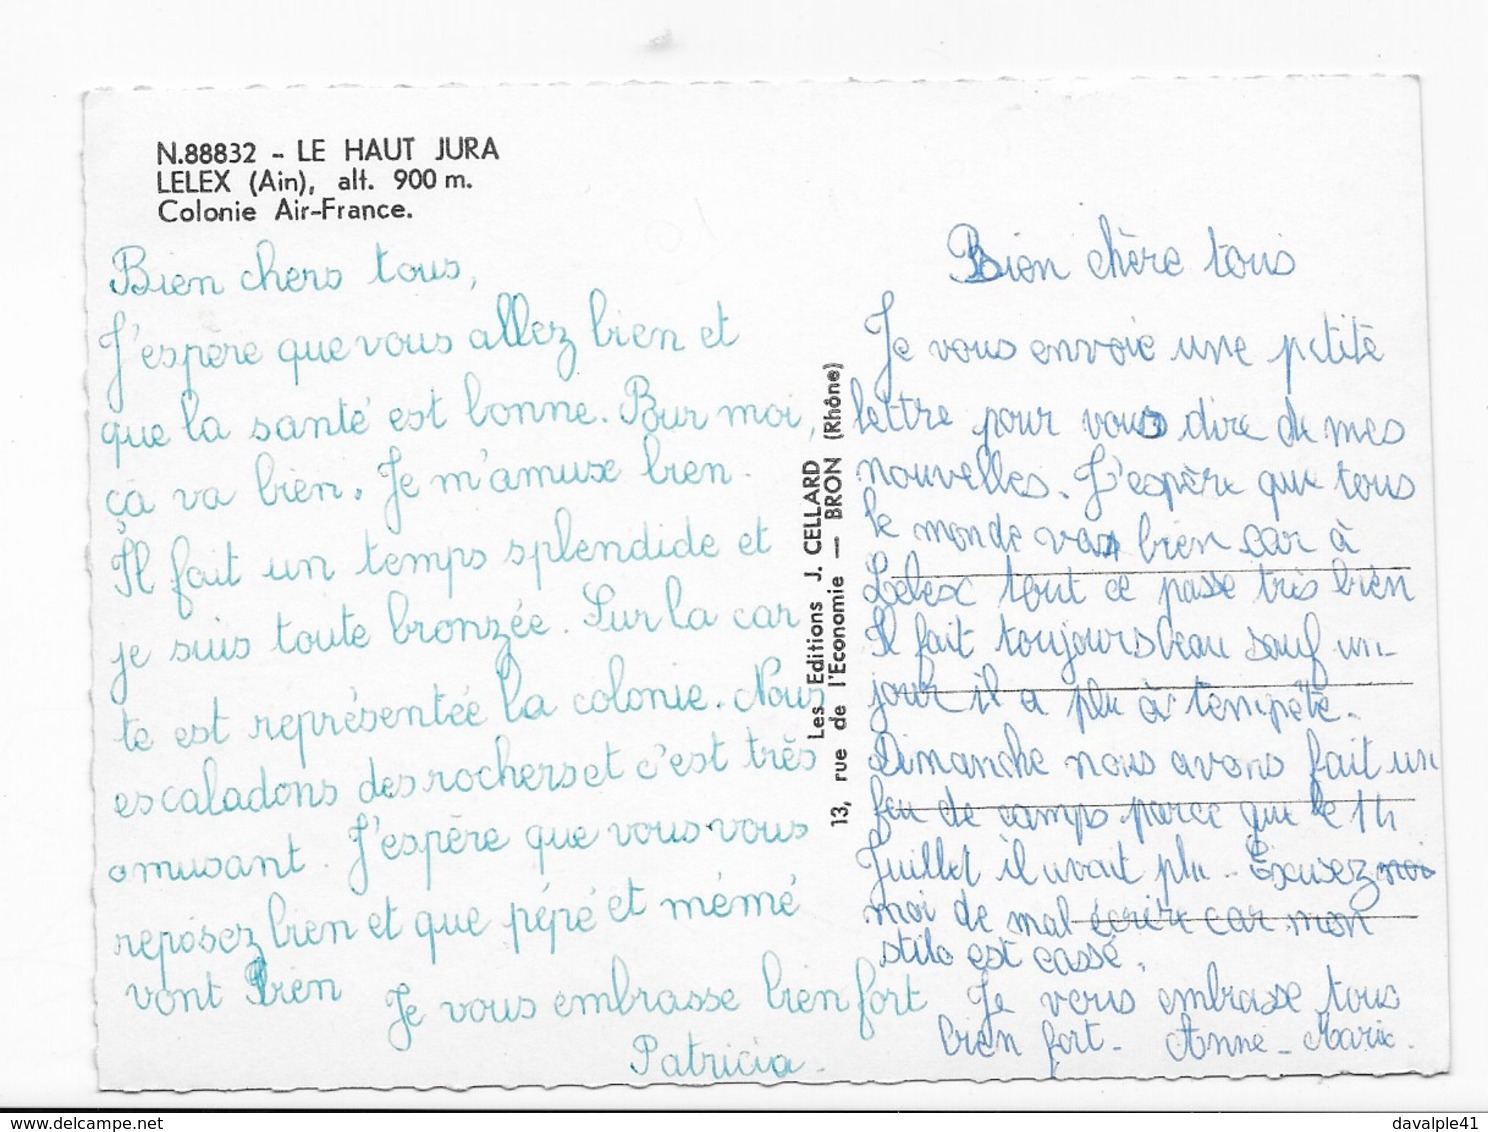 N.88832 - LE HAUT JURA
LELEX (Ain), alt. 900 m.
Colonie Air-France.
Bien chers tous,
J'espère que vous allez bien et
que la santé est bonne. Pour moi,
ça va bien. Je m'amuse bien.
Il fait un temps splendide et
je suis toute bronzée. Sur la car
te est représentée la colonie. Nous
escaladons des rochers et c'est très
amusant. J'espère que vous vous
reposez bien et que pépé et mémé
vont bien
Je vous embrasse bien fort
Patricia.
Les Editions J. CELLARD
13, rue de l'Economie — BRON (Rhône)
Bien chère tous
Je vous envoie une petite
lettre pour vous dire de mes
nouvelles. J'espère que tous
le monde va bien car à
Lelex tout ce passe très bien
Il fait toujours beau sauf un
jour il a plu à tempête.
Dimanche nous avons fait un
feu de camps parce que le 14
Juillet il avait plu. Excusez moi
moi de mal écrire car mon
stilo est cassé.
Je vous embrasse tous
bien fort. Anne-Marie.
davalple41
www.delcampe.net